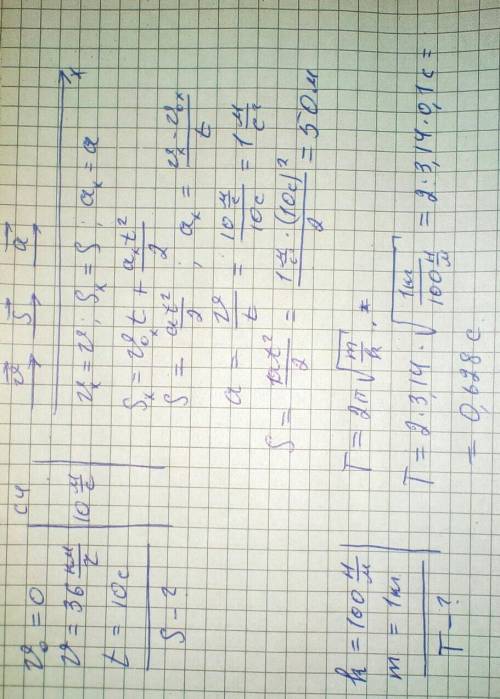 v₀ = 0
v = 36 км/г
t = 10с
S - ?
СИ
10 м/с
v⃗ S⃗ a⃗
x
vₓ = v; Sₓ = S; aₓ = a
Sₓ = v₀ₓt + aₓt²/2
S = at²/2; aₓ = (vₓ - v₀ₓ)/t
a = v/t = (10 м/с)/10с = 1 м/с²
S = at²/2 = (1 м/с² · (10с)²)/2 = 50м
k = 100 Н/м
m = 1кг
T - ?
T = 2π√(m/k)
T = 2·3,14·√(1кг/(100 Н/м)) = 2·3,14·0,1с =
= 0,628 с